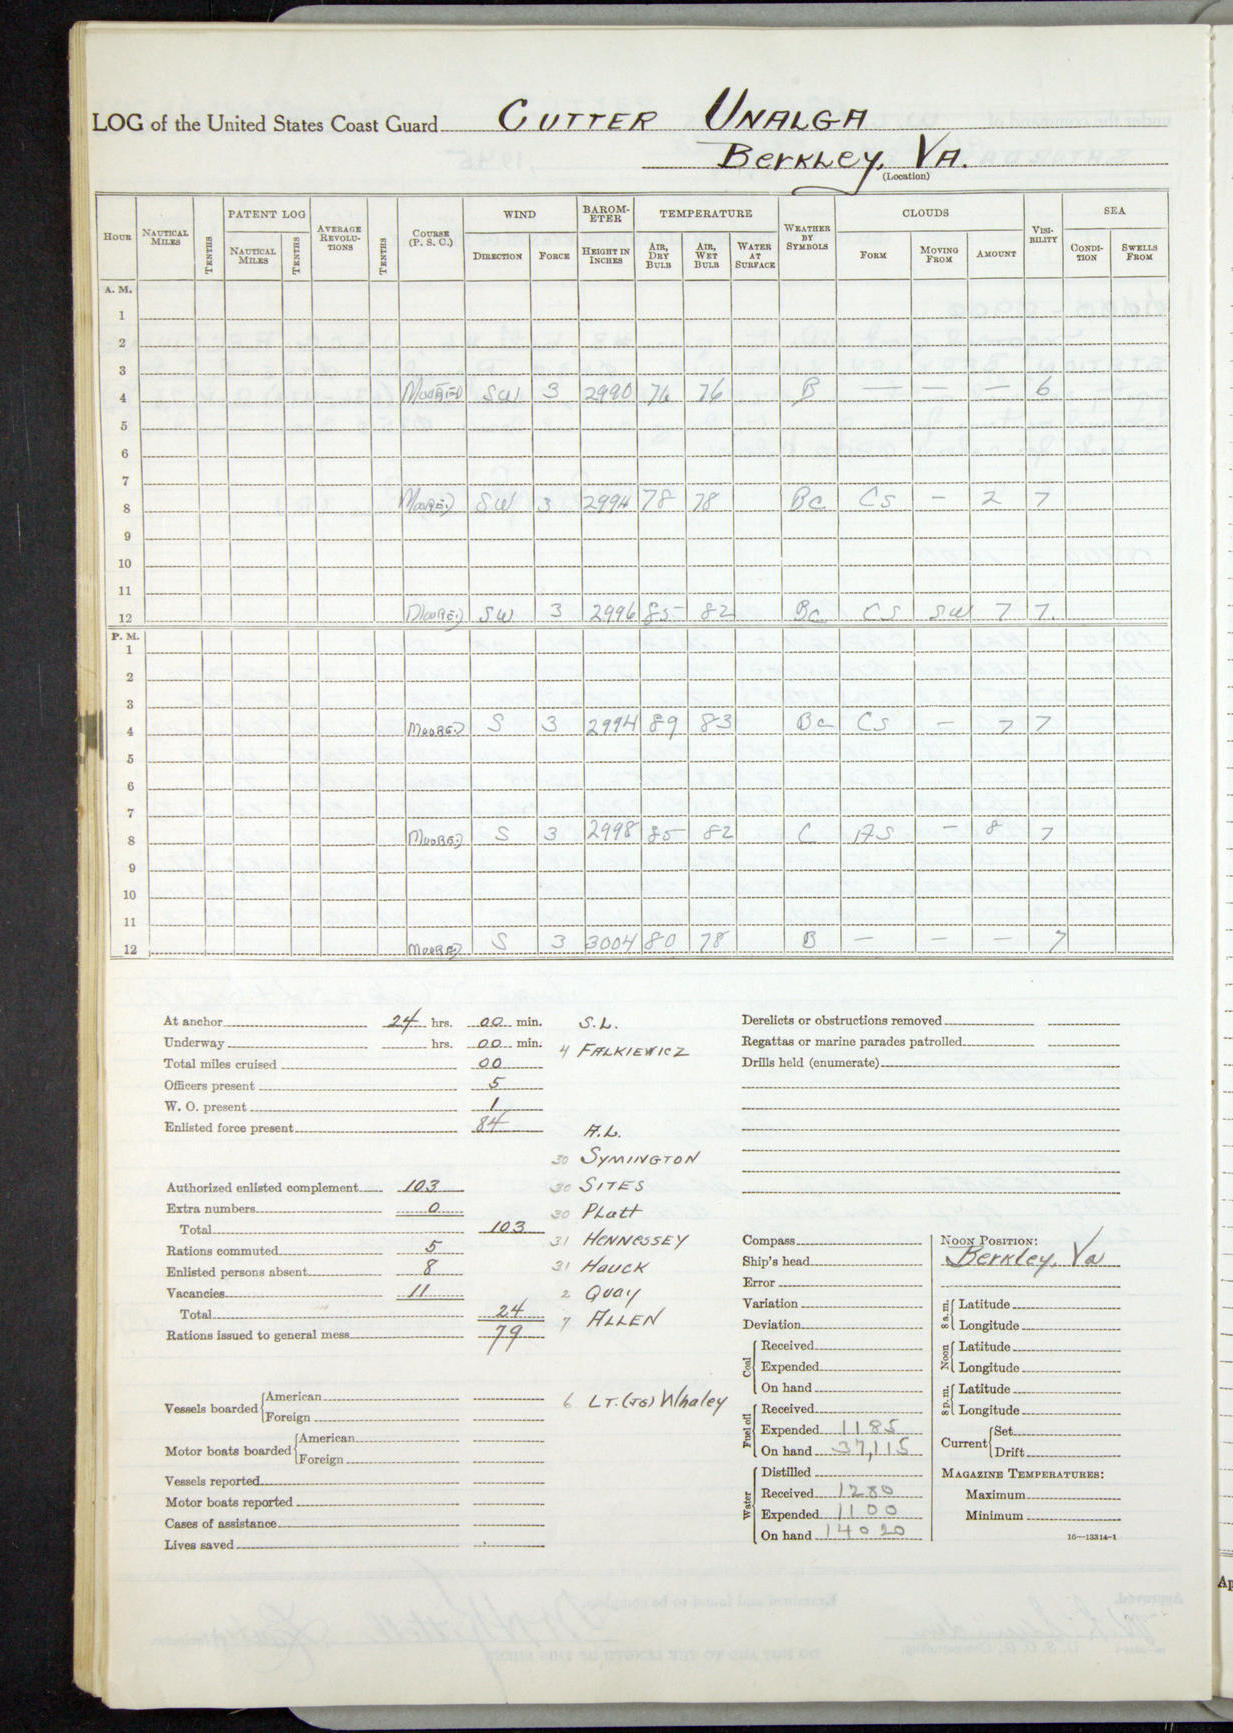 LOG of the United States Coast Guard CUTTER UNALGA
BERKLEY, VA.
(Location)
HOUR NAUTICAL MILES TENTHS PATENT LOG NAUTICAL MILES TENTHS AVERAGE REVOLUTIONS TENTHS COURSE (P. S. C.) WIND DIRECTION FORCE BAROMETER HEIGHT IN INCHES TEMPERATURE AIR, DRY BULB AIR, WET BULB WATER AT SURFACE WEATHER BY SYMBOLS CLOUDS FORM MOVING FROM AMOUNT VISIBILITY SEA CONDITION SWELLS FROM
A. M.
1
2
3
4 MOORED SW 3 2990 76 76 B — — — 6
5
6
7
8 MOORED SW 3 2994 78 78 BC CS — 2 7
9
10
11
12 MOORED SW 3 2996 85 82 BC CS SW 7 7
P. M.
1
2
3
4 MOORED S 3 2994 89 83 BC CS — 7 7
5
6
7
8 MOORED S 3 2998 85 82 C AS — 8 7
9
10
11
12 MOORED S 3 3004 80 78 B — — — 7
At anchor 24 hrs. 00 min.
Underway hrs. 00 min.
Total miles cruised 00
Officers present 5
W. O. present 1
Enlisted force present 84
Authorized enlisted complement 103
Extra numbers 0
Total 103
Rations commuted 5
Enlisted persons absent 8
Vacancies 11
Total 24
Rations issued to general mess 79
Vessels boarded American
Foreign
Motor boats boarded American
Foreign
Vessels reported
Motor boats reported
Cases of assistance
Lives saved
S.L.
4 FALKIEWICZ
A.L.
30 SYMINGTON
30 SITES
30 PLATT
31 HENNESSEY
31 HAUCK
2 QUAY
7 ALLEN
6 LT.(JG) Whaley
Derelicts or obstructions removed
Regattas or marine parades patrolled
Drills held (enumerate)
Compass
Ship's head
Error
Variation
Deviation
Coal Received
Expended
On hand
Fuel oil Received
Expended 1185
On hand 37,115
Water Distilled
Received 1280
Expended 1100
On hand 14020
NOON POSITION:
Berkley, Va
8 a.m. Latitude
Longitude
Noon Latitude
Longitude
8 p.m. Latitude
Longitude
Current Set
Drift
MAGAZINE TEMPERATURES:
Maximum
Minimum
16—13314-1
Ap